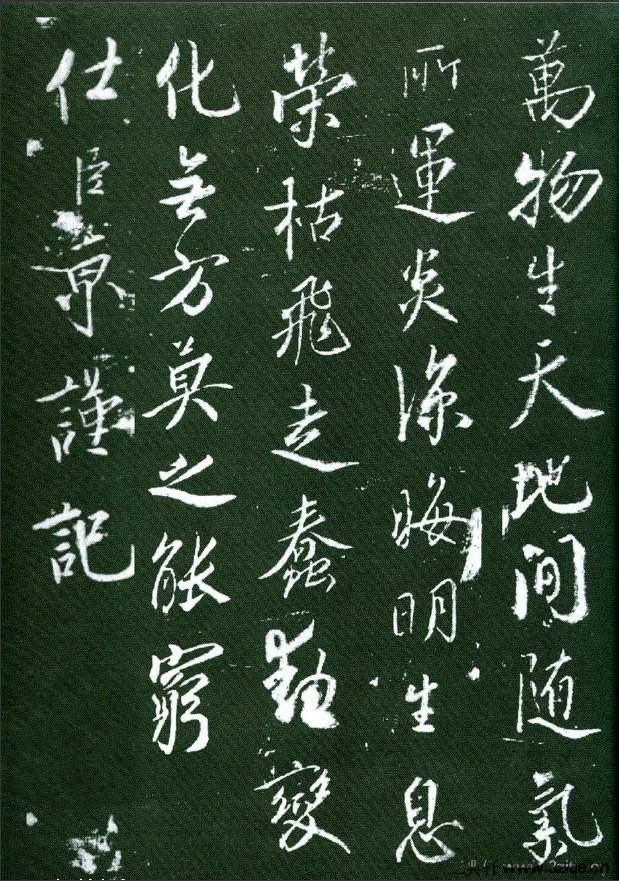 萬物生天地間随氣
所運炎涼晦明生息
榮枯飛走蠢動變
化無方莫之能窮
仕臣京謹記
三典轩 www.3zitie.cn